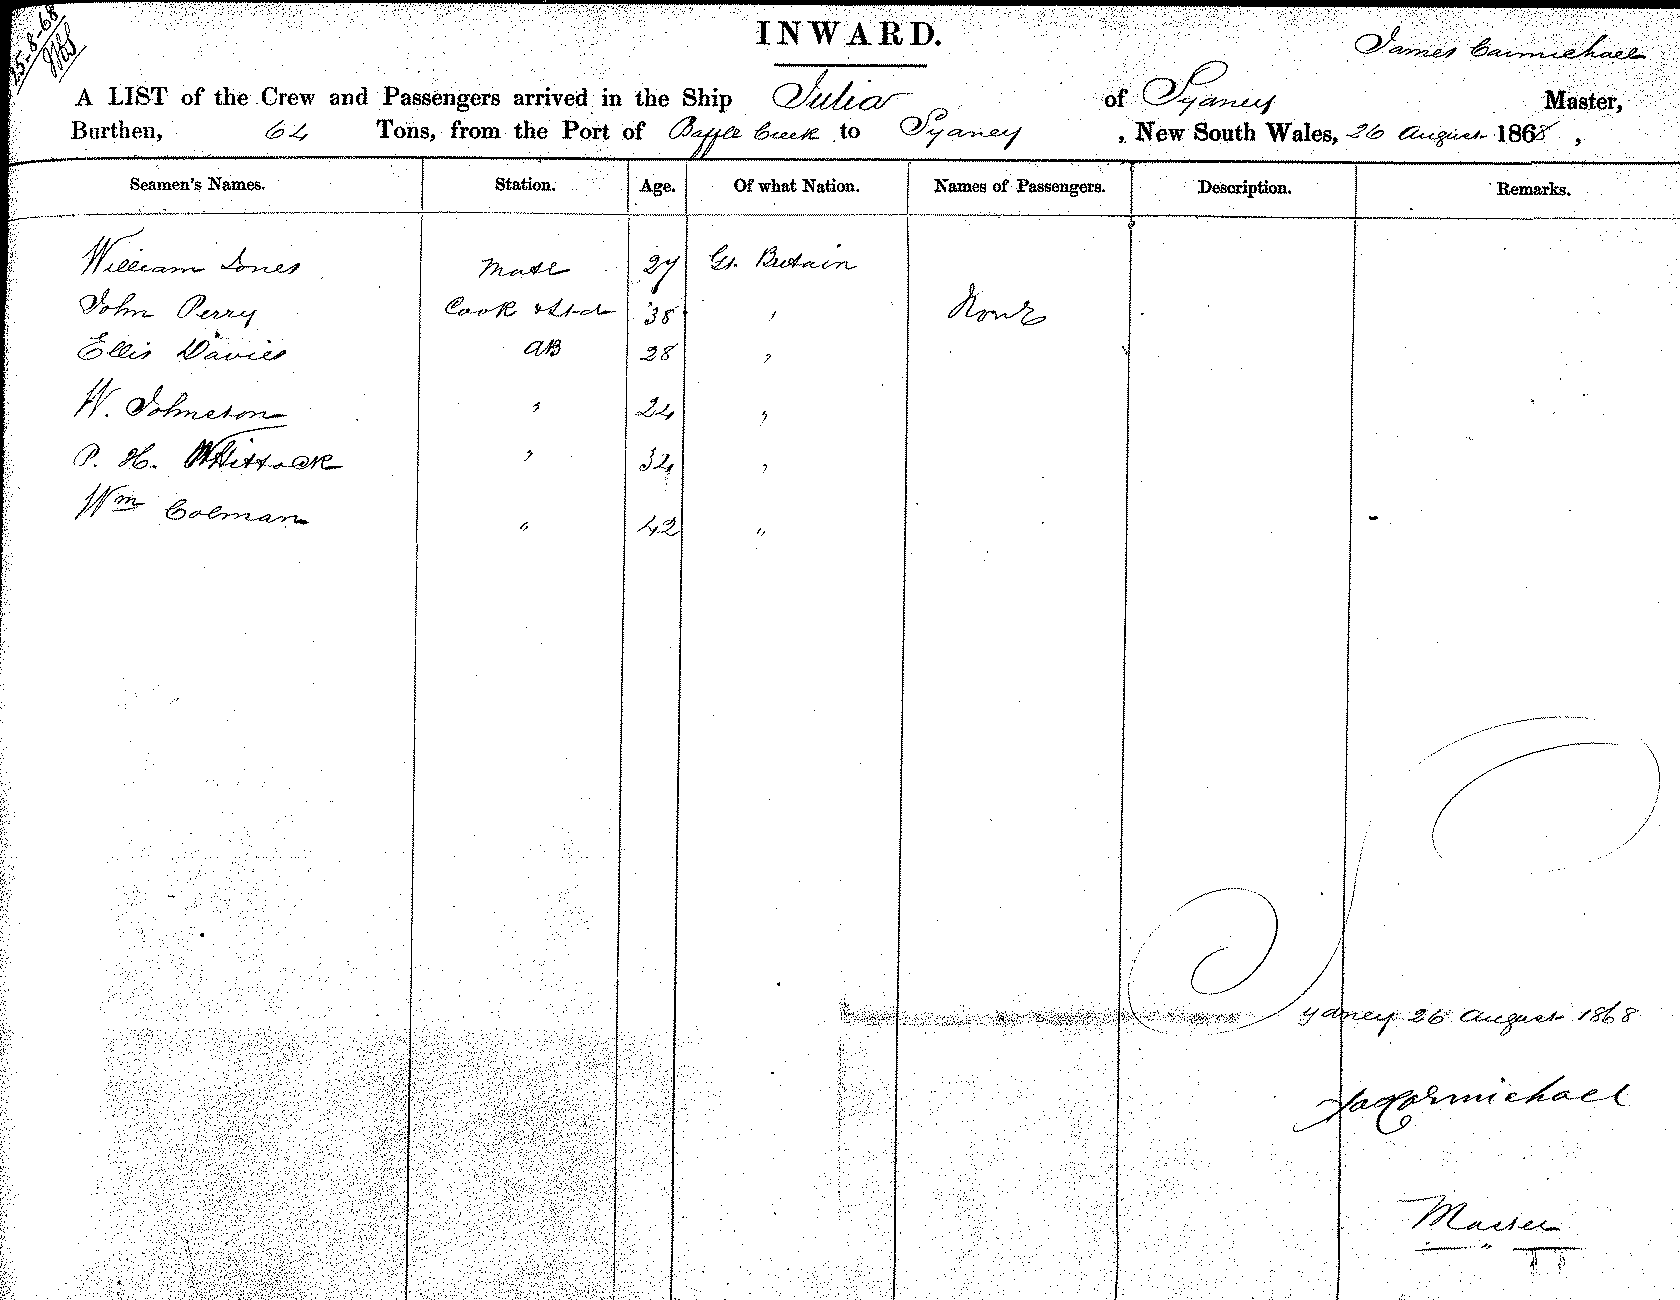 25-8-68
INWARD.
James Carmichael
A LIST of the Crew and Passengers arrived in the Ship Julia of Sydney Master,
Burthen, 64 Tons, from the Port of Baffle Creek to Sydney , New South Wales, 26 August 1868 ,
Seamen's Names. Station. Age. Of what Nation. Names of Passengers. Description. Remarks.
William Jones Mate 27 Gt. Britain
John Perry Cook & Std 38 " None
Ellis Davies AB 28 "
W. Johnston " 24 "
P. H. Whittock " 34 "
Wm Colman " 42 "
Sydney 26 August 1868
Jas Carmichael
Master